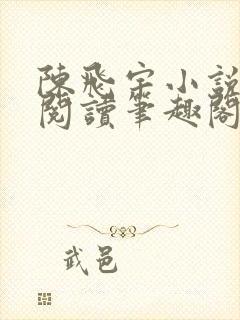 陳飛宇小說
閱讀筆趣閣
武邑